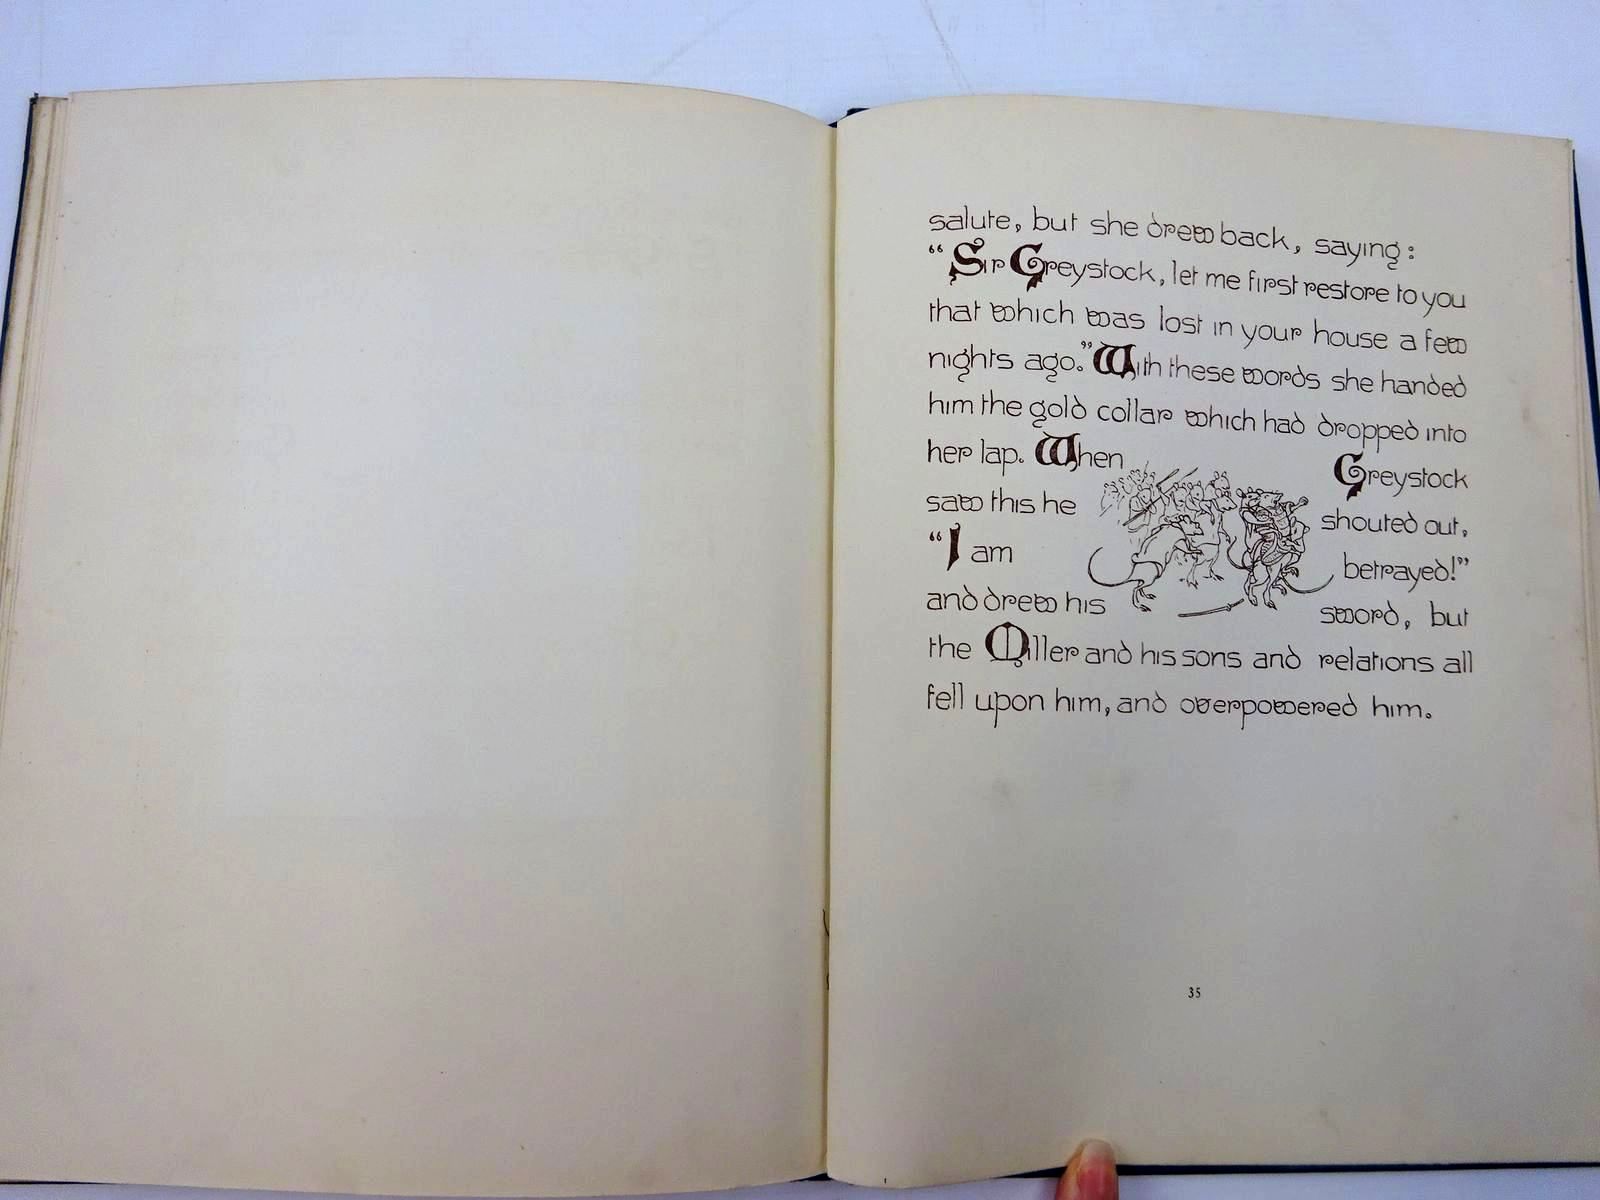 salute, but she drew back, saying:
“Sir Greystock, let me first restore to you
that which was lost in your house a few
nights ago.” With these words she handed
him the gold collar which had dropped into
her lap. When Greystock
saw this he shouted out,
“I am betrayed!”
and drew his sword, but
the Miller and his sons and relations all
fell upon him, and overpowered him.
35